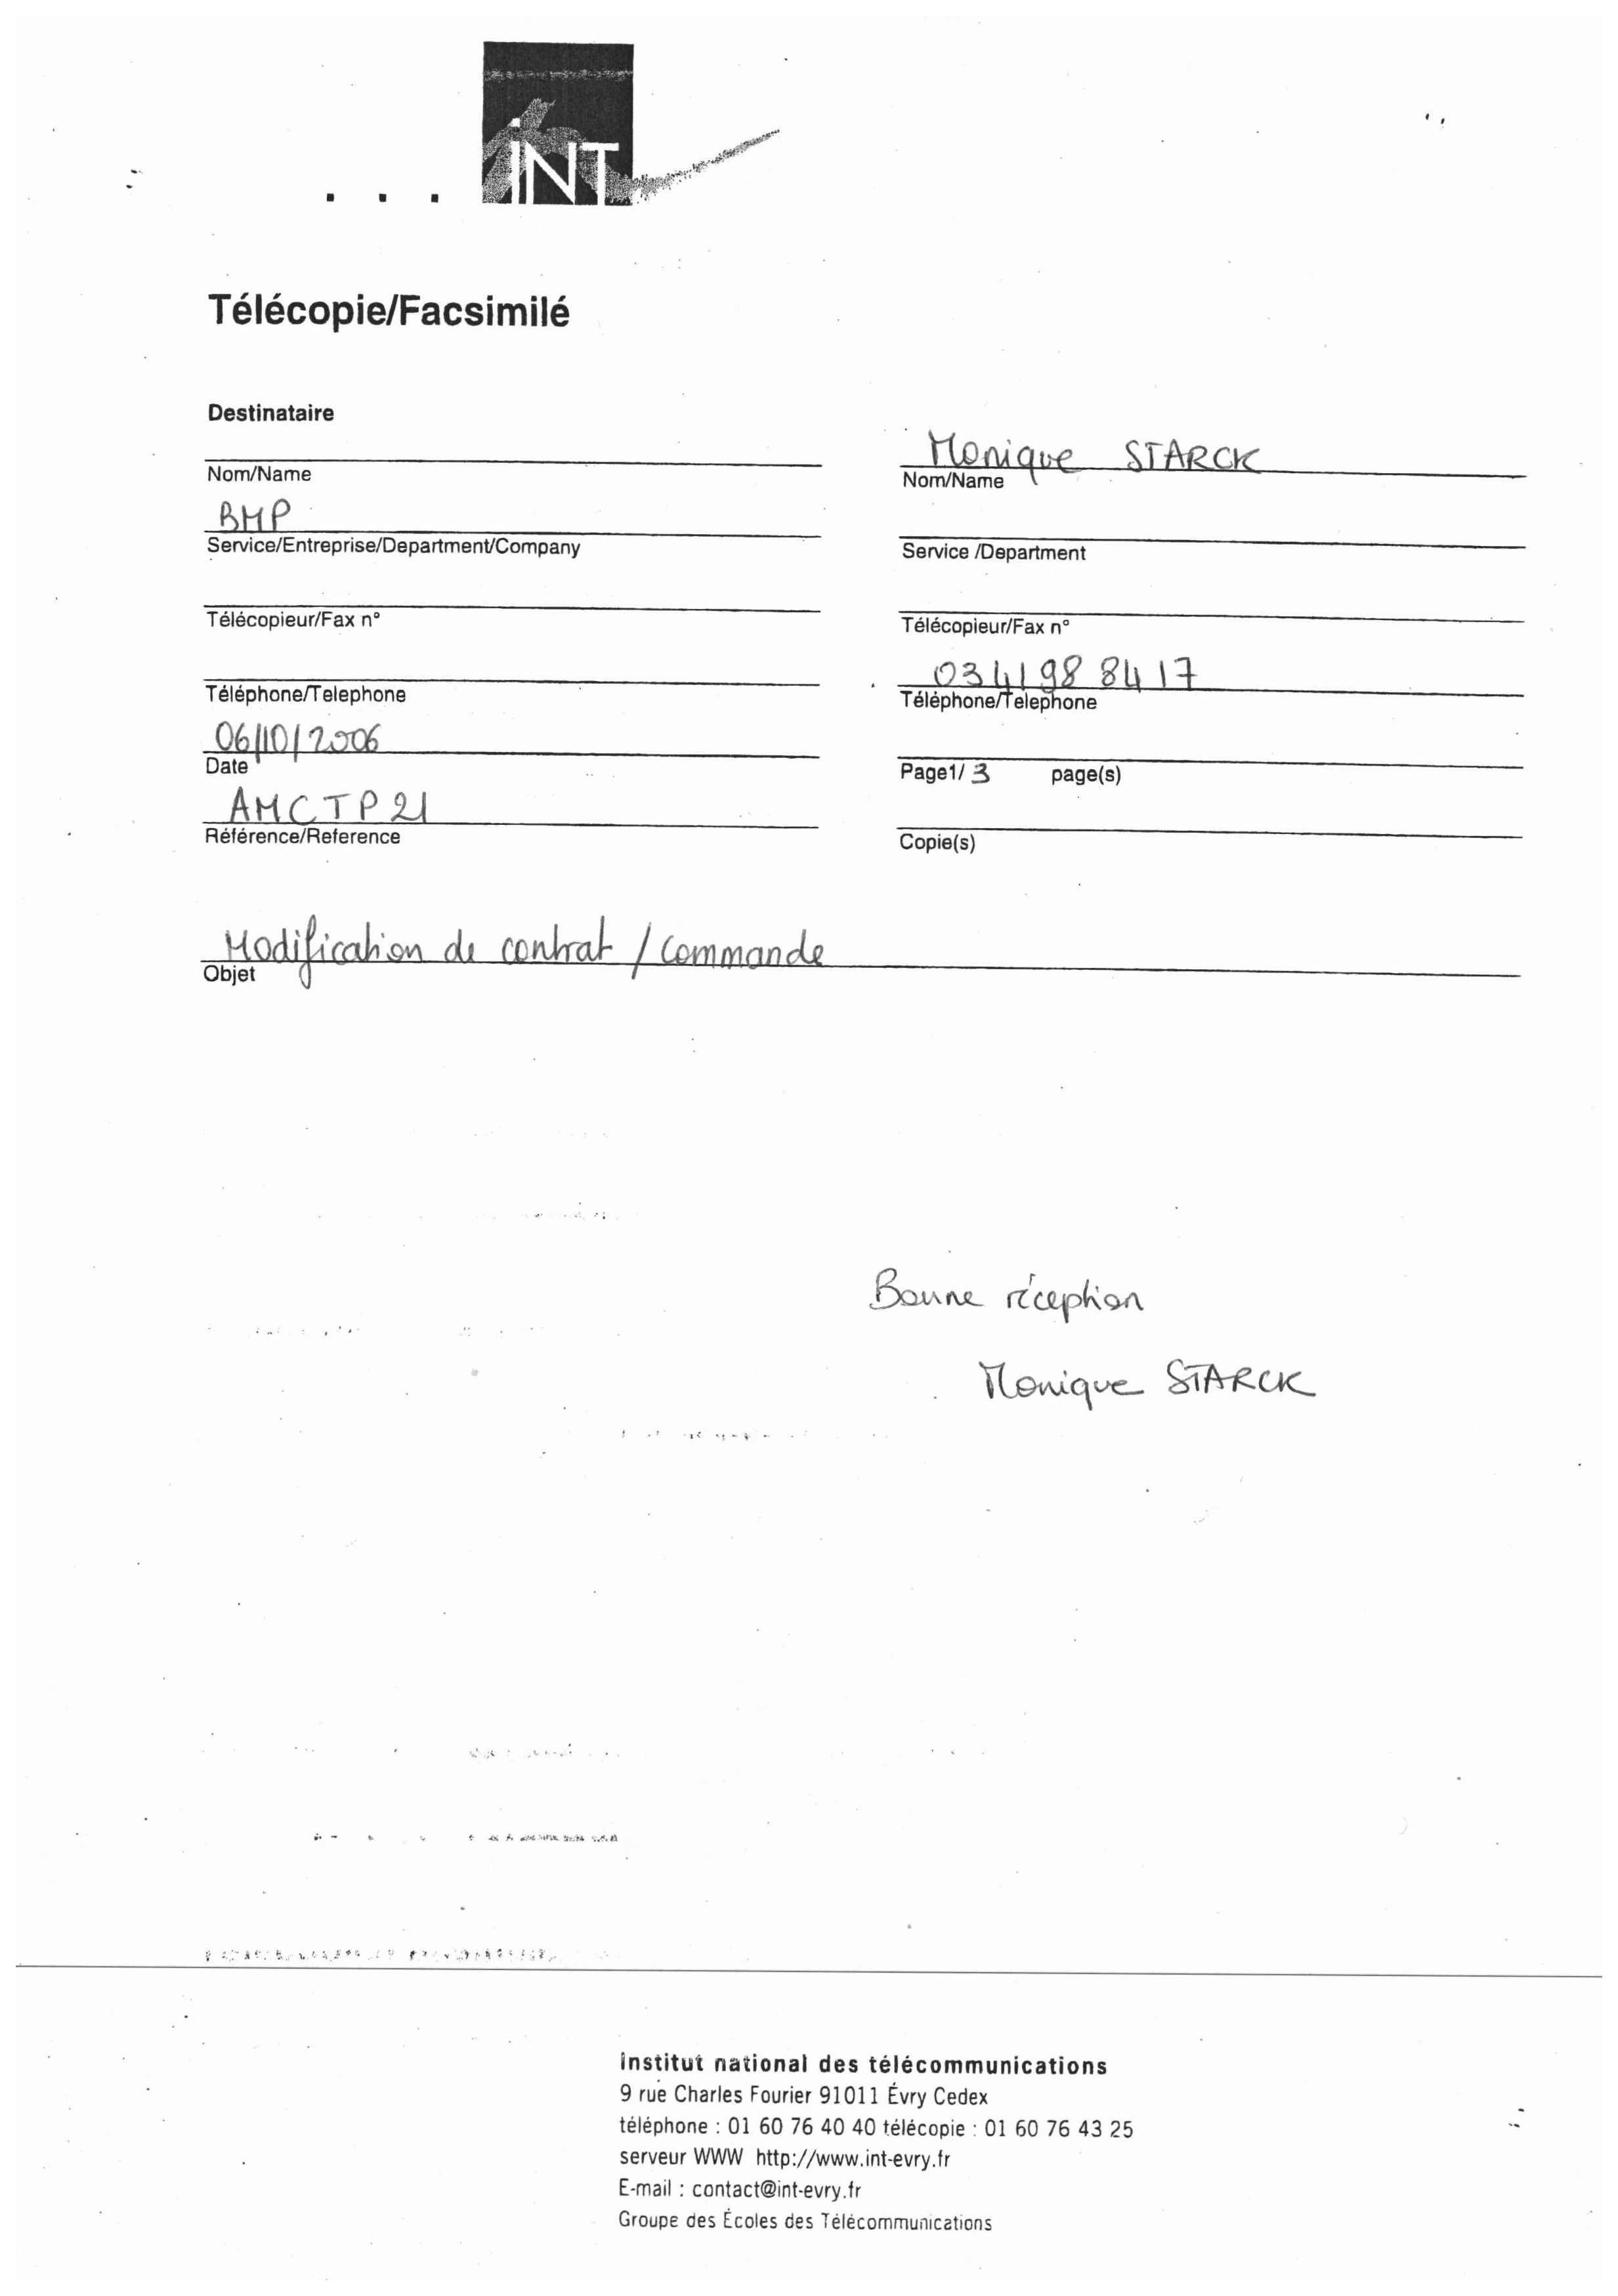 iNT
Télécopie/Facsimilé
Destinataire
Nom/Name
BMP
Service/Entreprise/Department/Company
Télécopieur/Fax n°
Téléphone/Telephone
06/10/2006
Date
AMCTP21
Référence/Reference
Monique STARCK
Nom/Name
Service /Department
Télécopieur/Fax n°
03 41 98 84 17
Téléphone/Telephone
Page1/ 3 page(s)
Copie(s)
Modification de contrat / commande
Objet
Bonne réception
Monique STARCK
institut national des télécommunications
9 rue Charles Fourier 91011 Évry Cedex
téléphone : 01 60 76 40 40 télécopie : 01 60 76 43 25
serveur WWW http://www.int-evry.fr
E-mail : contact@int-evry.fr
Groupe des Écoles des Télécommunications